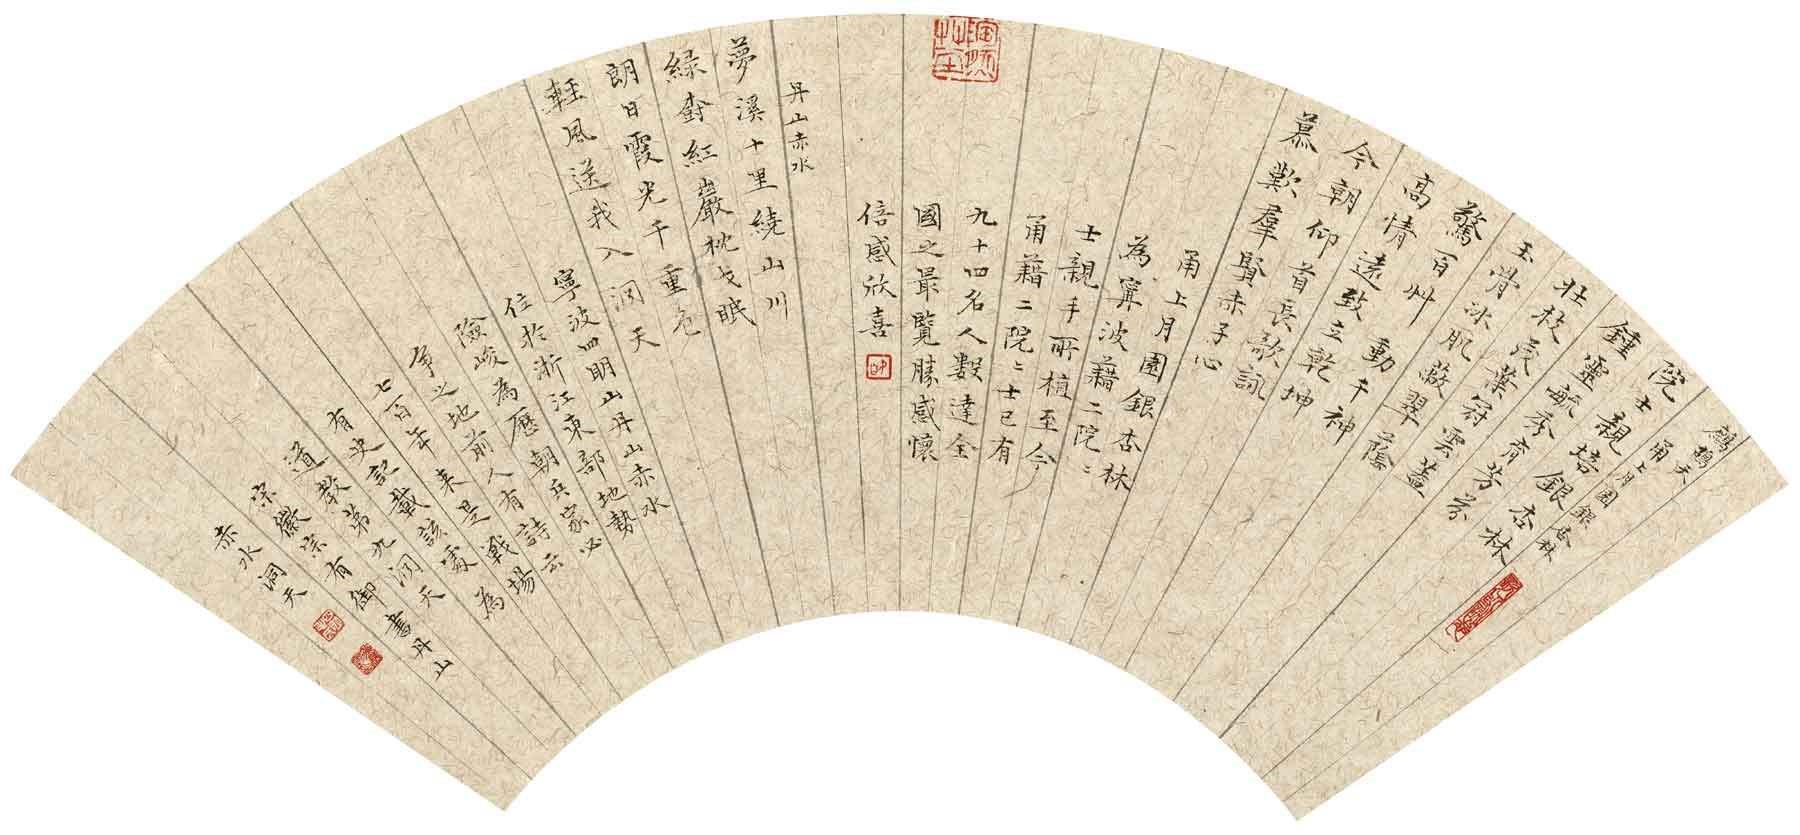 鷓鴣天
甬上月園銀杏林
院士親培銀杏林
鍾靈毓秀育芳芬
壯枝茂葉冠雲蓋
玉骨冰肌蔽翠蔭
驚百艸 動牛神
高情遠致立乾坤
今朝仰首長歌詠
慕歎羣賢赤子心
甬上月園銀杏林
為甯波藉二院二
士親手所植至今
甬藉二院二士已有
九十四名人數達全
國之最覽勝感懷
倍感欣喜
丹山赤水
夢溪十里繞山川
緑樹紅巖枕戈眠
朗日霞光千重色
輕風送我入洞天
寧波四明山丹山赤水
位於浙江東部地勢
險峻為歷朝兵家必
爭之地前人有詩云
七百年來是戰場
有史記載該處為
道教第九洞天
宋徽宗有御書丹山
赤水洞天